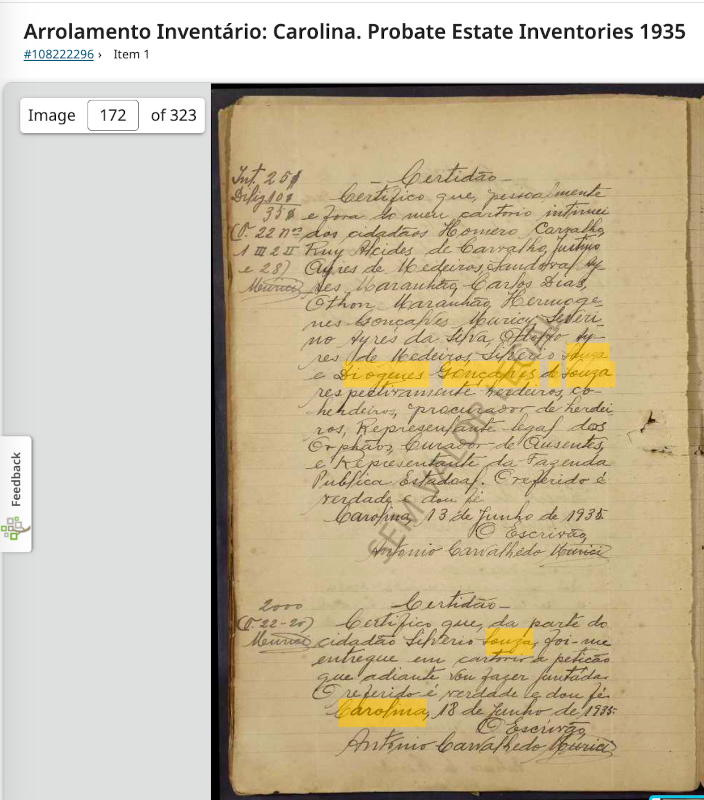 Arrolamento Inventário: Carolina. Probate Estate Inventories 1935
#108222296 › Item 1
Image 172 of 323
Feedback
- Certidão -
Int. 25$
Dilig 10$
35$
(O. 22 nº
1 III 2 II
e 28)
Muricí
Certifico que, pessoalmente
e fora do meu cartorio intimei
aos cidadãos Homero Carvalho,
Ruy Alcides de Carvalho, Justino
Ayres de Medeiros, Sandoval Ay-
res, Maranhão, Carlos Dias,
Othon Maranhão, Hermoge-
nes Gonçalves Muricy, Severi-
no Ayres da Silva, Othoffo Ay-
res de Medeiros, Silverio Souza
e Diogenes Gonçalves de Souza
respectivamente herdeiros, co-
herdeiros, procurador de herdei
ros, Representante legal dos
Orphãos, Curador de Ausentes,
e Representante da Fazenda
Publica Estadoal. O referido é
verdade e dou fé.
Carolina, 13 de Junho de 1935.
O Escrivão,
Antonio Carvalhedo Muricí
- Certidão -
2000
(O-22-20)
Muricí
Certifico que, da parte do
cidadão Silverio Souza, foi-me
entregue em cartorio a petição
que adiante vou fazer juntada.
O referido é verdade e dou fé.
Carolina, 18 de Junho de 1935.
O Escrivão,
Antonio Carvalhedo Muricí
SEM VALOR